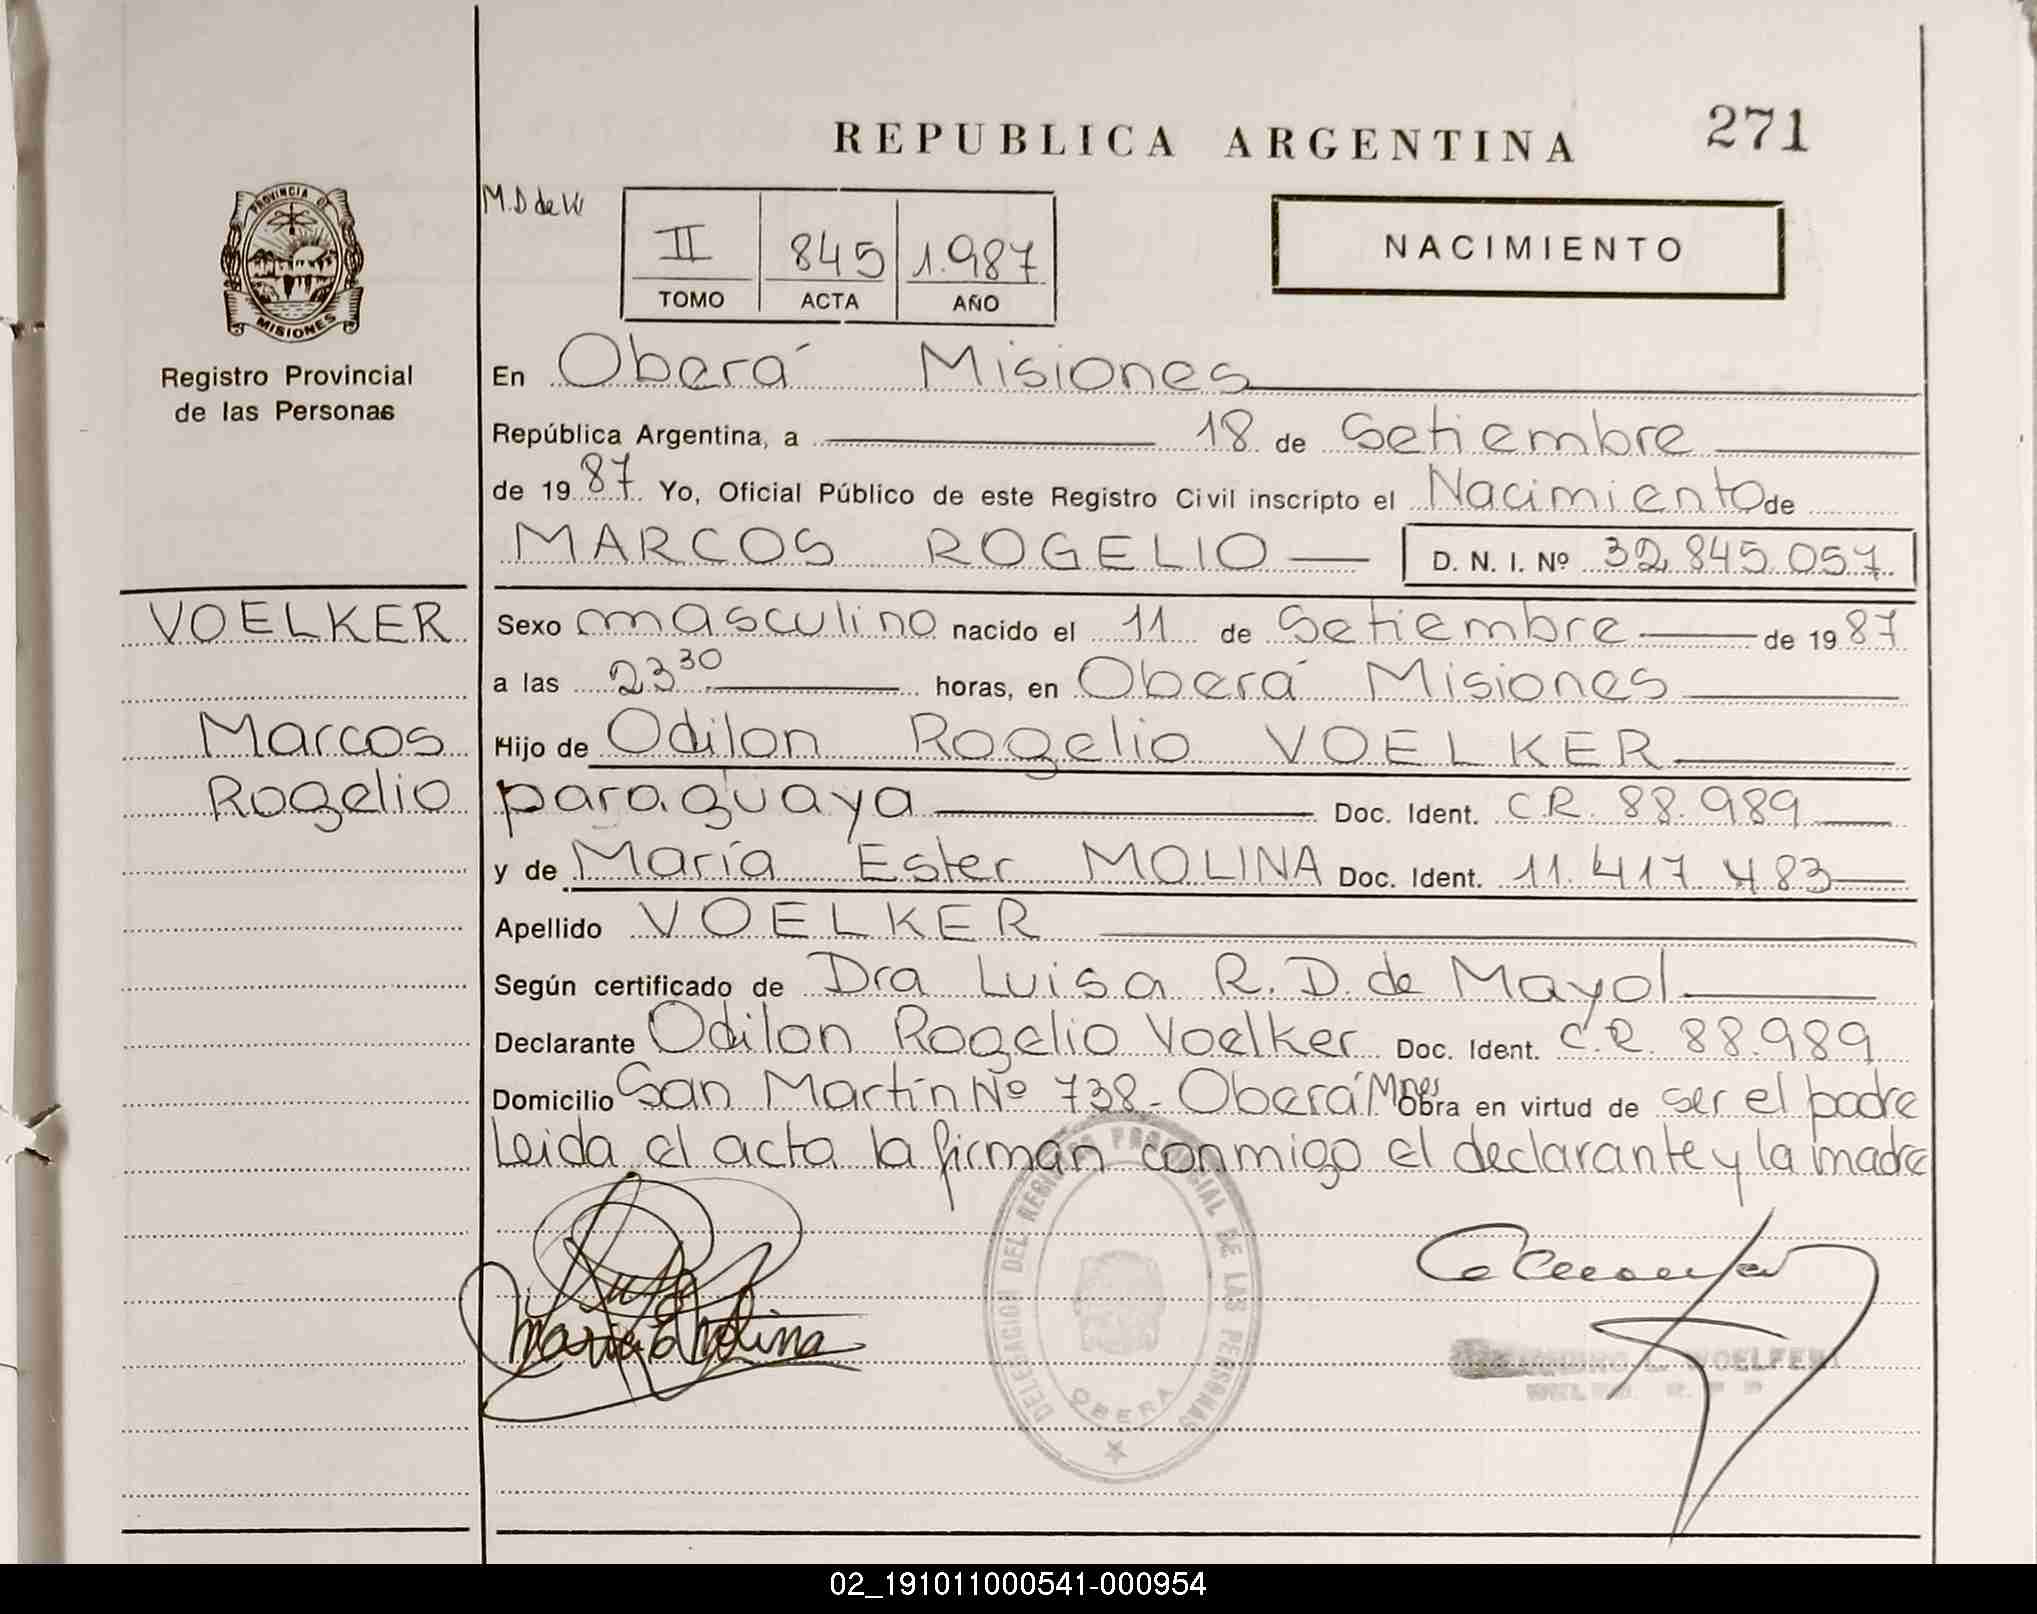 REPUBLICA ARGENTINA
271
PROVINCIA DE
MISIONES
Registro Provincial
de las Personas
M.D de W
II 845 1.987
TOMO ACTA AÑO
NACIMIENTO
En Oberá Misiones
República Argentina, a 18 de Setiembre
de 19 87 Yo, Oficial Público de este Registro Civil inscripto el Nacimiento de
MARCOS ROGELIO D. N. I. Nº 32.845.057
VOELKER
Marcos
Rogelio
Sexo masculino nacido el 11 de Setiembre de 19 87
a las 23 30 horas, en Oberá Misiones
Hijo de Odilon Rogelio VOELKER
paraguaya Doc. Ident. C.R. 88.989
y de María Ester MOLINA Doc. Ident. 11.417 483
Apellido VOELKER
Según certificado de Dra Luisa R. D. de Mayol
Declarante Odilon Rogelio Voelker Doc. Ident. C.R. 88.989
Domicilio San Martín Nº 738 - Oberá Mnes Obra en virtud de ser el padre
Leida el acta la firman conmigo el declarante y la madre
Maria E Molina
DELEGACION DEL REGISTRO PROVINCIAL DE LAS PERSONAS
OBERA
L. WOELFERT
02_191011000541-000954